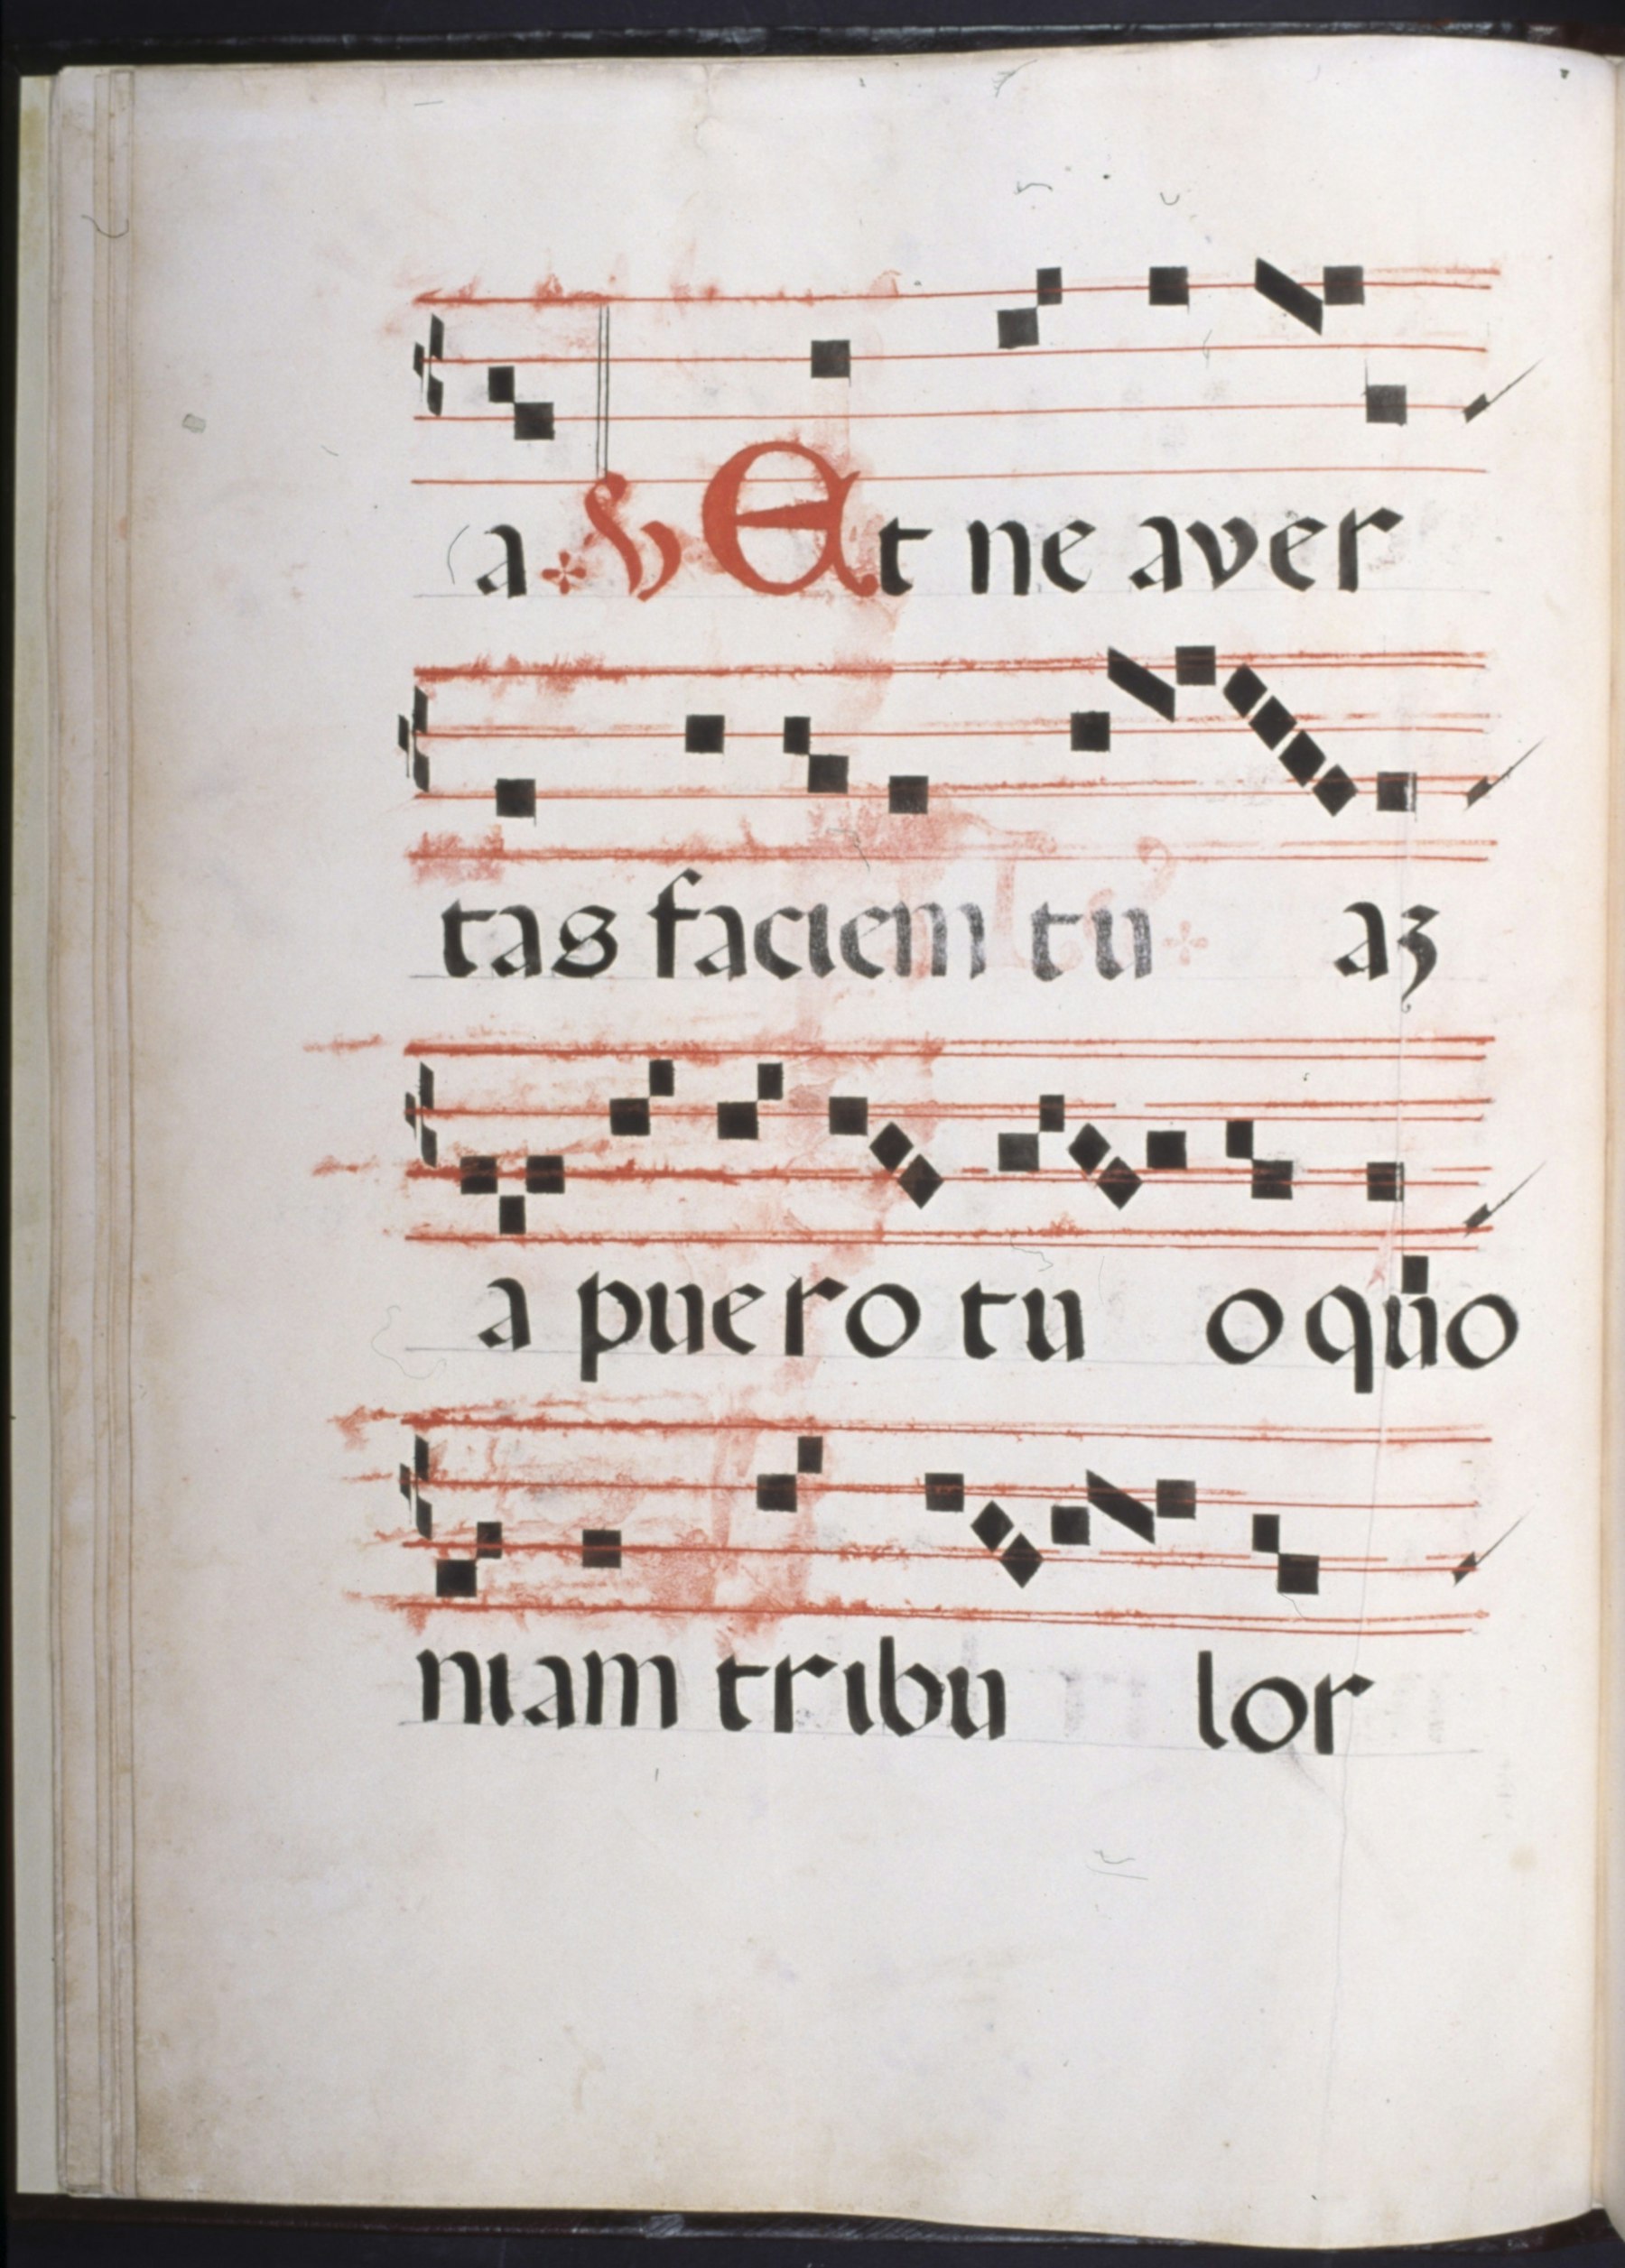 a ℣ Et ne aver
tas faciem tu aʒ
a puero tu o quo
niam tribu lor